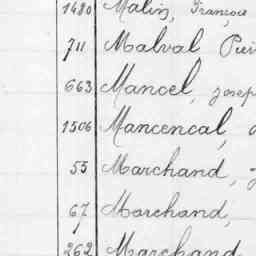 1480 Malin, François
711 Malval
663 Manoel, Josep
1506 Mancencal,
55 Marchand,
67 Marchand,
262 Marchand